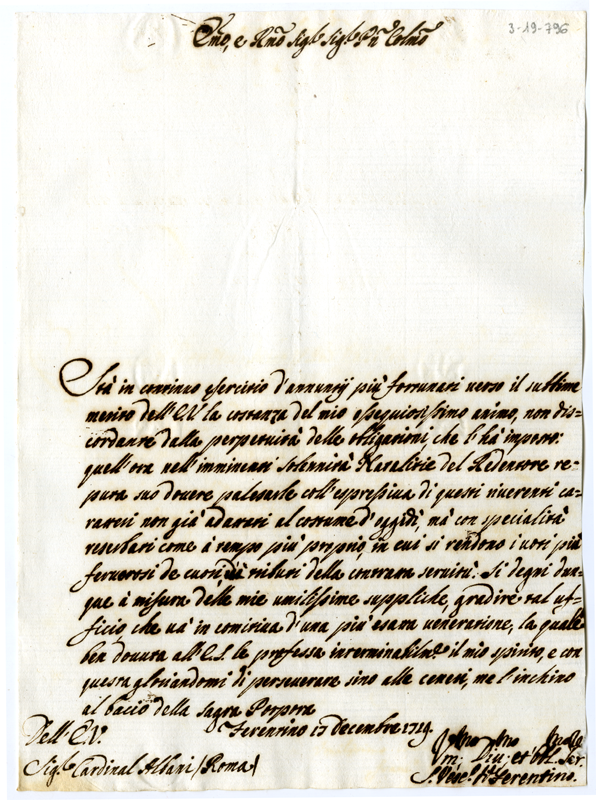 3-19-796
Emo, e Rmo Sigre Sigre Pn Colmo
Stà in continuo esercitio d'annuntij più fortunati verso il sublime
merito dell'E.V. la costanza del mio ossequiosissimo animo, non dis-
cordante dalla perpetuità delle obligationi, che l'hà imposto:
quell'ora nell'imminenti solennità Natalitie del Redentore re-
puta suo dovere palesarle coll'espressiva di questi riverenti ca-
ratteri non già adattati al costume d'oggidì, mà con specialità
reserbati come à tempo più proprio, in cui si rendono i voti più
fervorosi de cuori tributi della contratta servitù. Si degni dun-
que à misura delle mie umilissime suppliche, gradire tal uf-
ficio, che và in comitiva d'una più esatta venerazione, la quale
ben dovuta all'E.S. le professa interminabilmte il mio spirito, e con
questa gloriandomi di perseverare sino alle ceneri, me l'inchino
al bacio della Sagra Porpora
Ferentino 17 Decembre 1719.
Dell'E.V.
Um: Div: et Obl. Ser.
Sigre Cardinal Albani /Roma/
Vesc. di Ferentino.